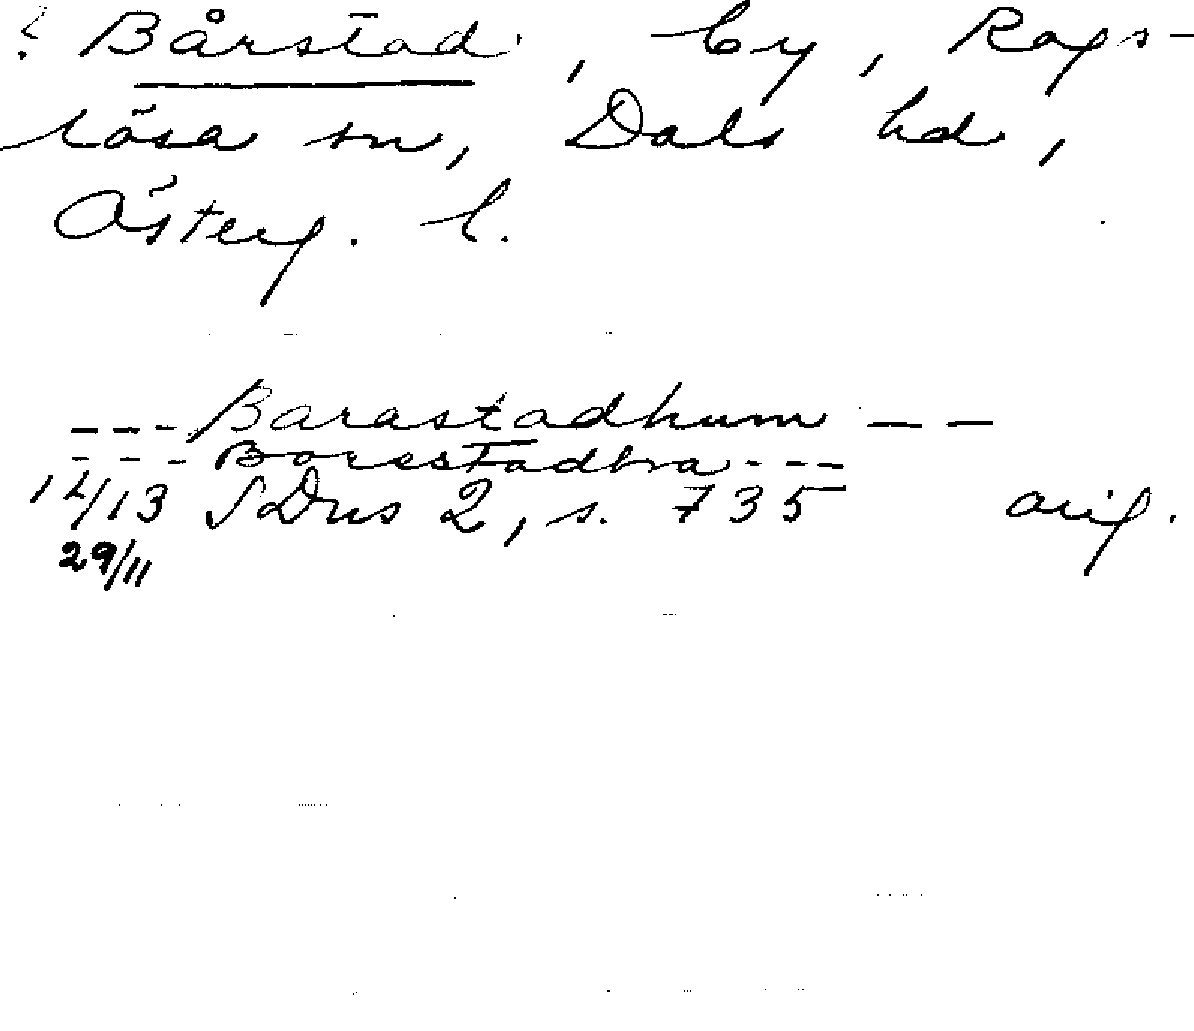 ? Bårstad, by, Rogs-
lösa sn, Dals hd,
Österg. l.
--- Barastadhum — —
--- Borestadhra ---
12/13 SDns 2, s. 735 orig.
29/11